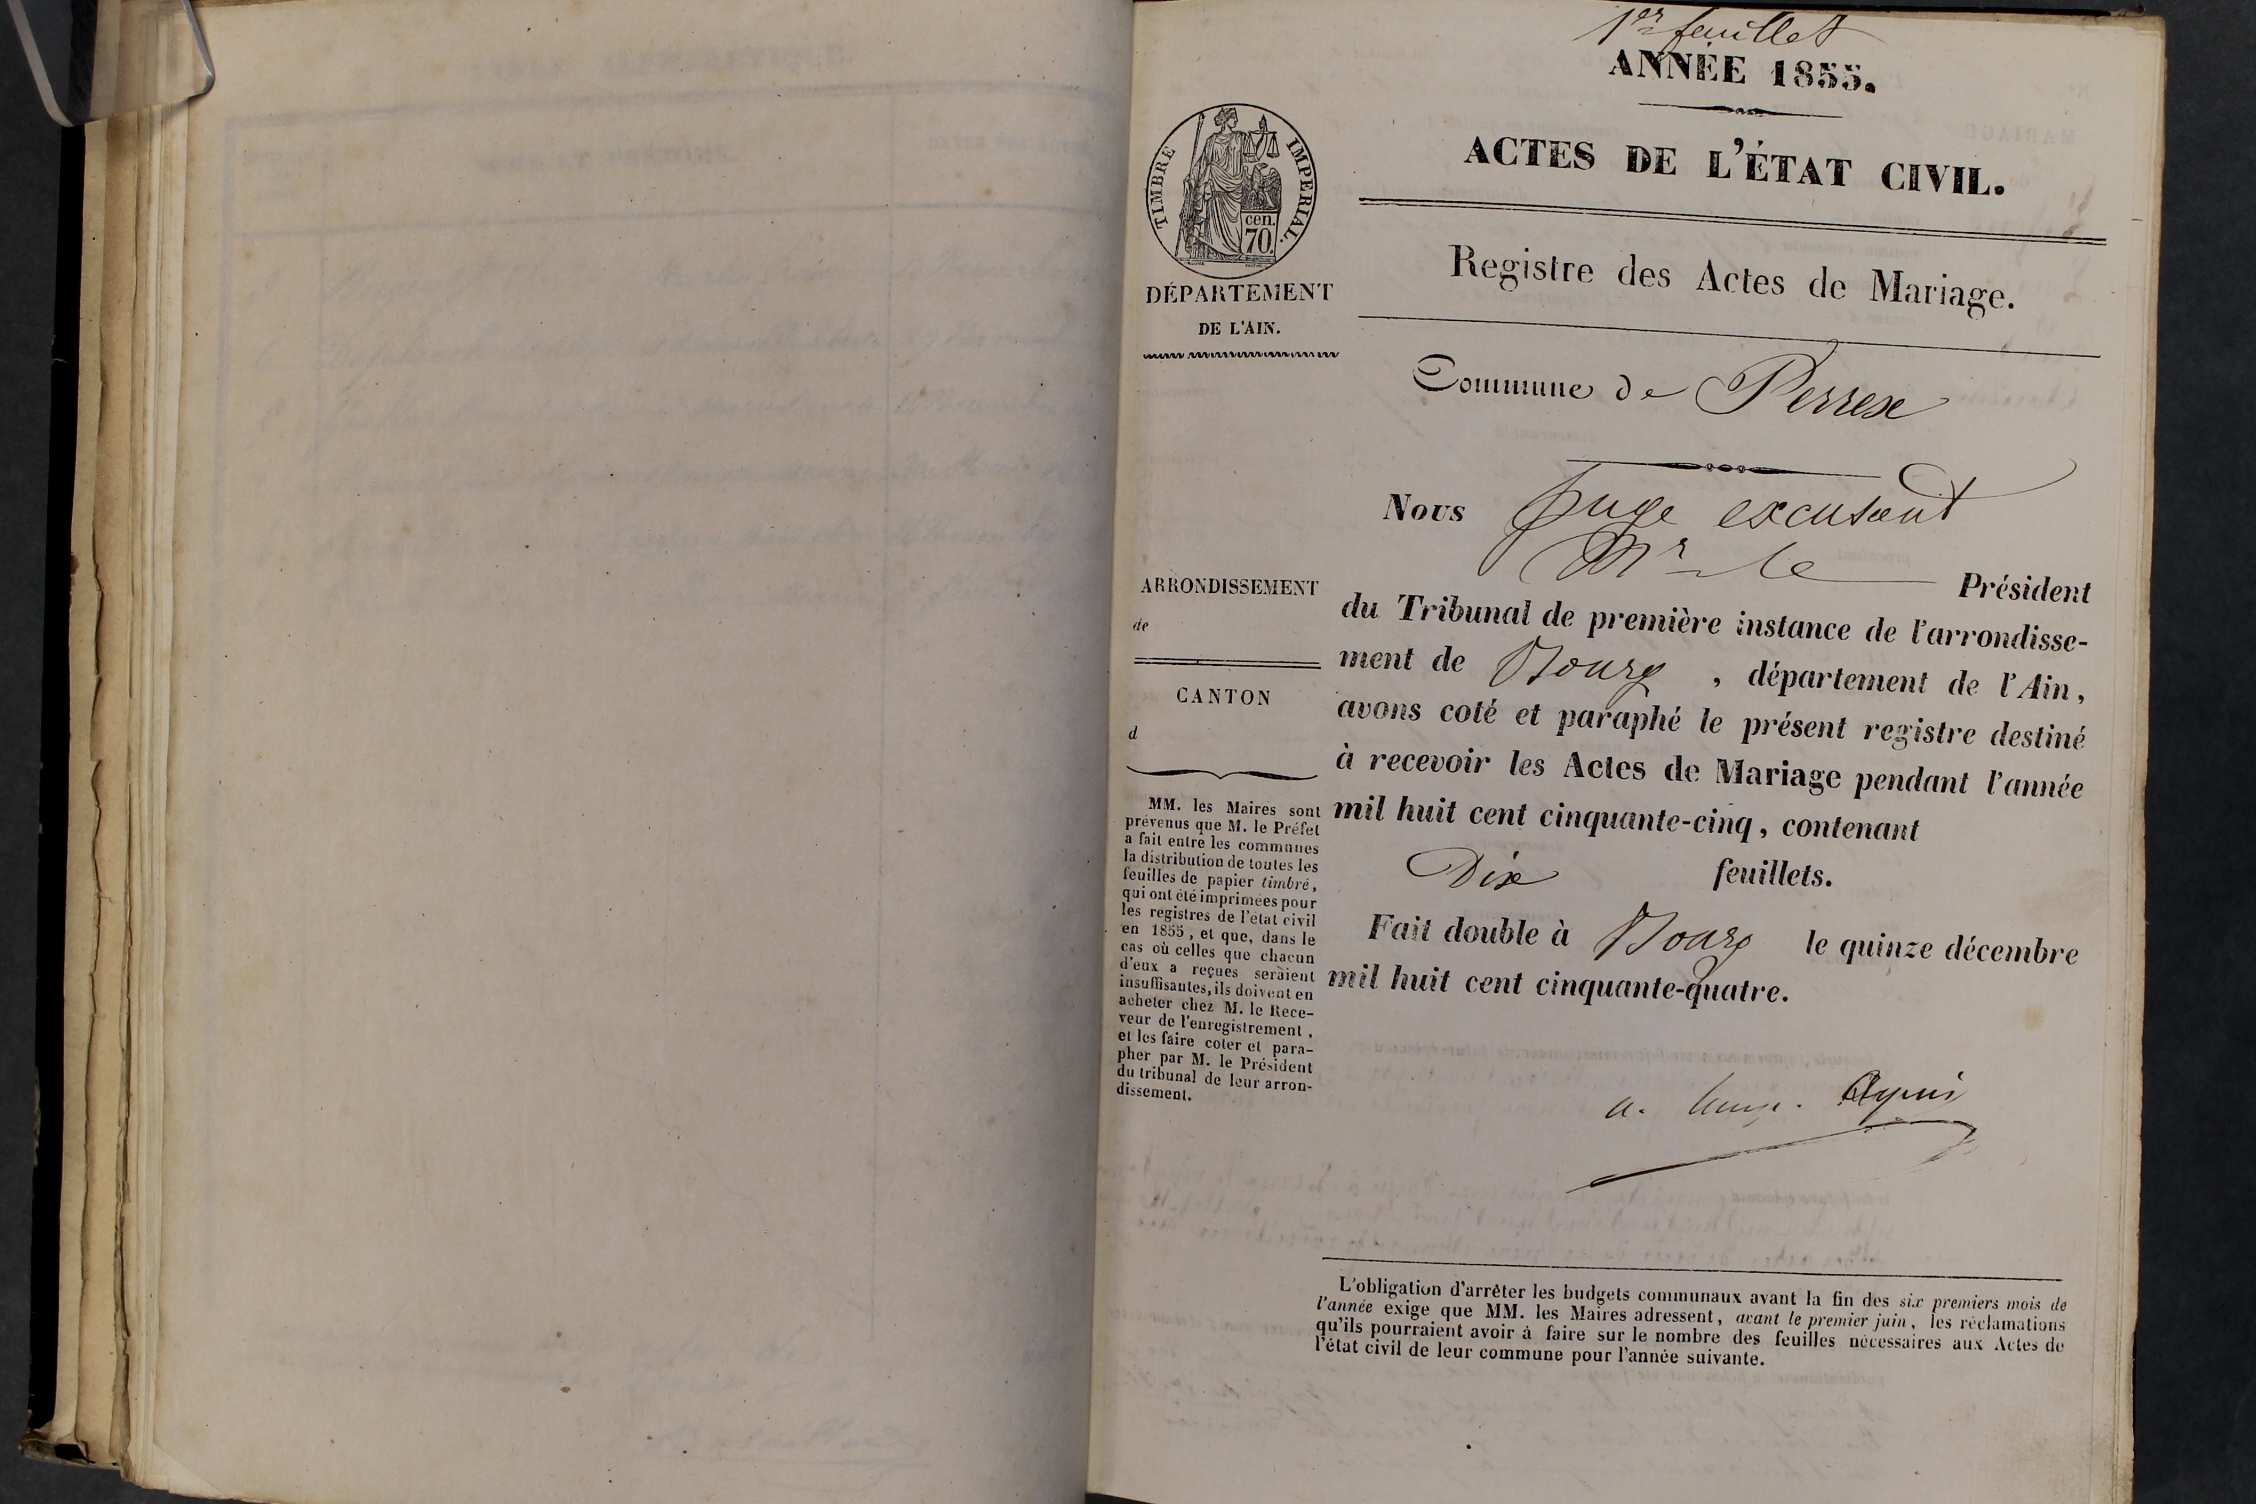 1er feuillet
ANNÉE 1855.
ACTES DE L'ÉTAT CIVIL.
TIMBRE IMPERIAL.
cen.
70.
DÉPARTEMENT
DE L'AIN.
Registre des Actes de Mariage.
Commune de Perrex
Nous Juge excusant
Mr le Président
du Tribunal de première instance de l'arrondisse-
ment de Bourg, département de l'Ain,
avons coté et paraphé le présent registre destiné
à recevoir les Actes de Mariage pendant l'année
mil huit cent cinquante-cinq, contenant
Dix feuillets.
Fait double à Bourg le quinze décembre
mil huit cent cinquante-quatre.
ARRONDISSEMENT
de
CANTON
d
MM. les Maires sont
prévenus que M. le Préfet
a fait entre les communes
la distribution de toutes les
feuilles de papier timbré,
qui ont été imprimées pour
les registres de l'état civil
en 1855, et que, dans le
cas où celles que chacun
d'eux a reçues seraient
insuffisantes, ils doivent en
acheter chez M. le Rece-
veur de l'enregistrement,
et les faire coter et para-
pher par M. le Président
du tribunal de leur arron-
dissement.
L'obligation d'arrêter les budgets communaux avant la fin des six premiers mois de
l'année exige que MM. les Maires adressent, avant le premier juin, les réclamations
qu'ils pourraient avoir à faire sur le nombre des feuilles nécessaires aux Actes de
l'état civil de leur commune pour l'année suivante.